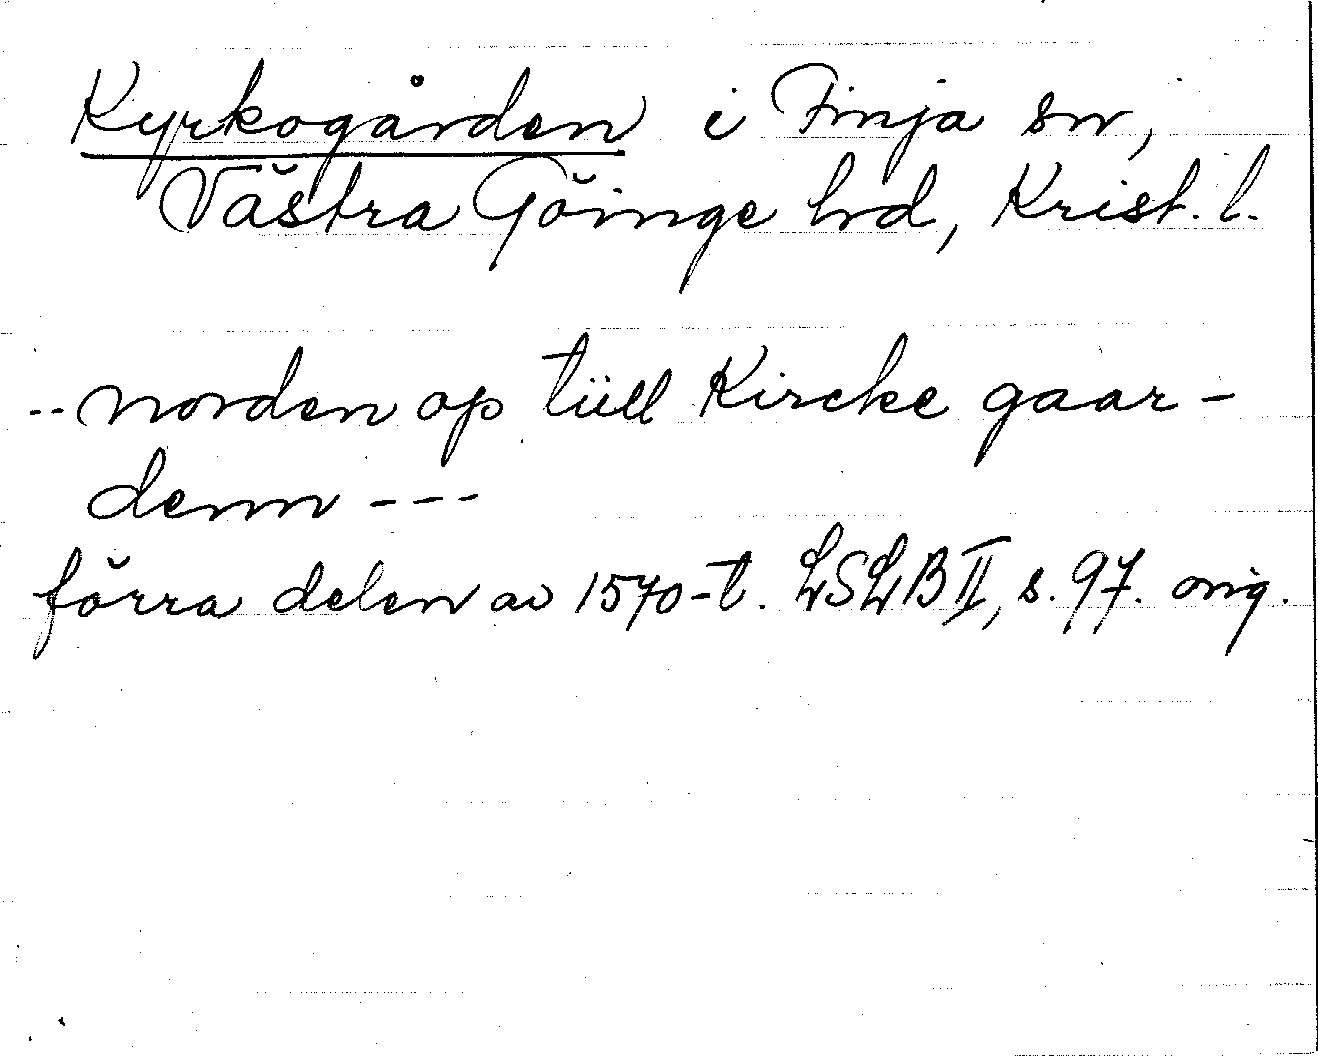 Kyrkogården i Finja sn,
Västra Göinge hrd, Krist. l.
-- norden op tüll Kircke gaar-
denn ---
förra delen av 1570-t. LSLB II, s. 97. orig.